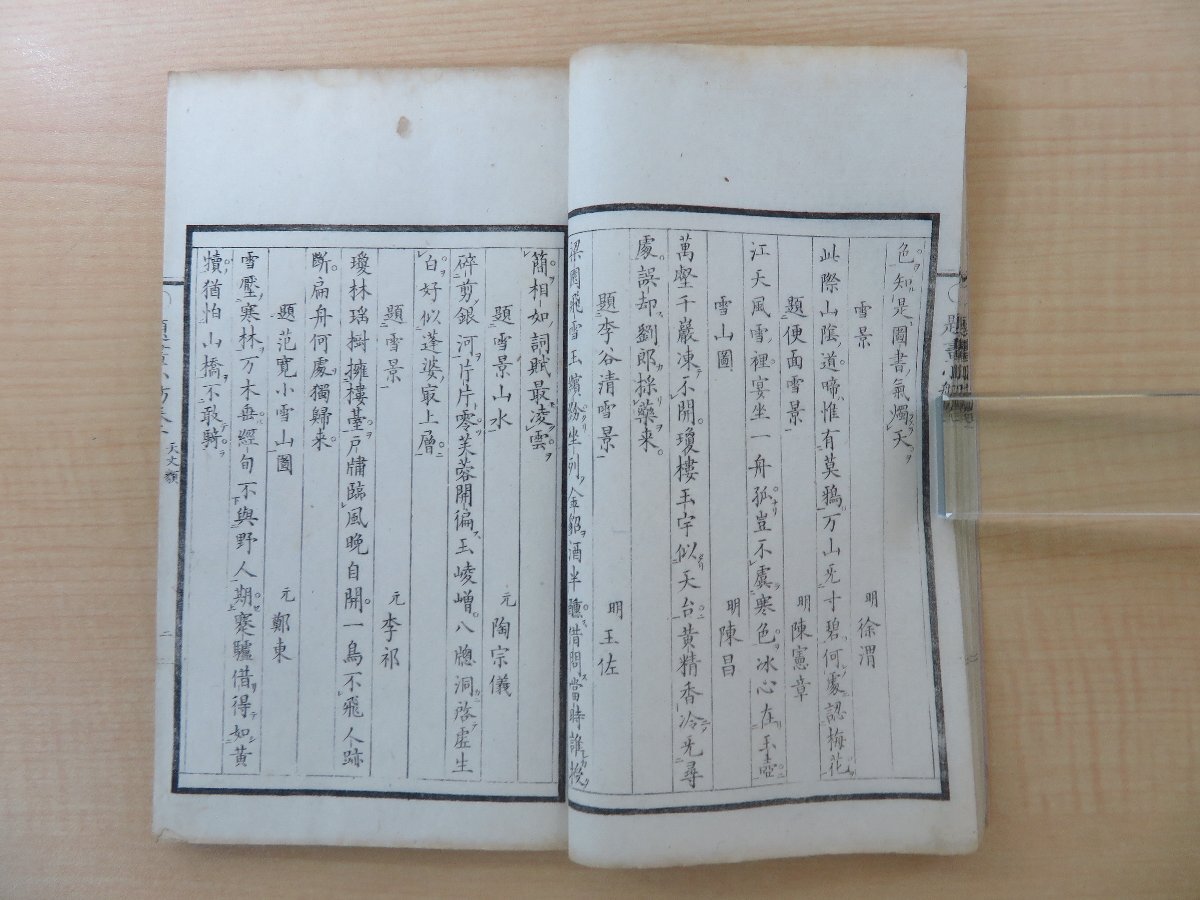 色知是圖書氣燭天
雪景 明 徐渭
此際山陰道啼惟有莫鴉万山旡寸碧何處認梅花
題便面雪景 明 陳憲章
江天風雪裡宴坐一舟孤豈不虞寒色冰心在玉壺
雪山圖 明 陳昌
萬壑千巖凍不開瓊樓玉宇似天台黄精香冷旡尋
處誤却劉郎採藥来
題李谷清雪景 明 王佐
梁園飛雪玉繽粉坐列金貂酒半醺借問當時誰授
簡相如詞賦最凌雲
題雪景山水 元 陶宗儀
碎剪銀河片片零芙蓉開徧玉崚嶒八牕洞啓虚生
白好似蓬婆㝡上層
題雪景 元 李祁
瓊林瑶樹擁樓臺戸牗臨風晚自開一鳥不飛人跡
断扁舟何處獨歸来
題范寛小雪山圖 元 鄭東
雪壓寒林万木無經旬不與野人期蹇驢借得如黄
犢猶怕山橋不敢騎
天文類
二